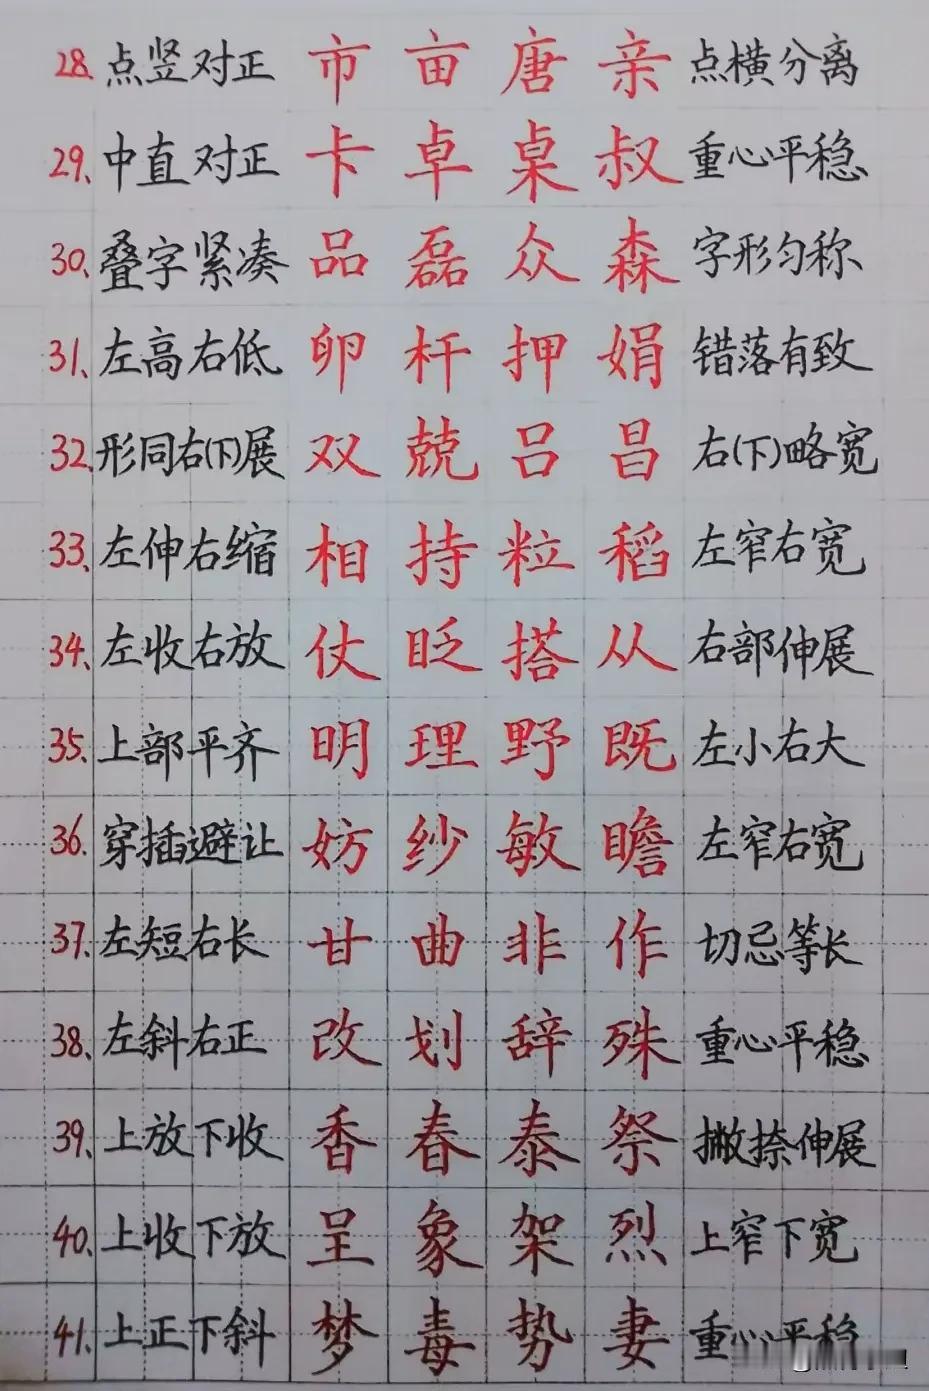 28. 点竖对正 市 亩 唐 亲 点横分离
29. 中直对正 卡 卓 桌 叔 重心平稳
30. 叠字紧凑 品 磊 众 森 字形匀称
31. 左高右低 卵 杆 押 娟 错落有致
32. 形同右(下)展 双 兢 吕 昌 右(下)略宽
33. 左伸右缩 相 持 粒 稻 左窄右宽
34. 左收右放 仗 眨 搭 从 右部伸展
35. 上部平齐 明 理 野 既 左小右大
36. 穿插避让 妨 纱 敏 瞻 左窄右宽
37. 左短右长 甘 曲 非 作 切忌等长
38. 左斜右正 改 划 辞 殊 重心平稳
39. 上放下收 香 春 泰 祭 撇捺伸展
40. 上收下放 呈 象 架 烈 上窄下宽
41. 上正下斜 梦 毒 势 妻 重心平稳